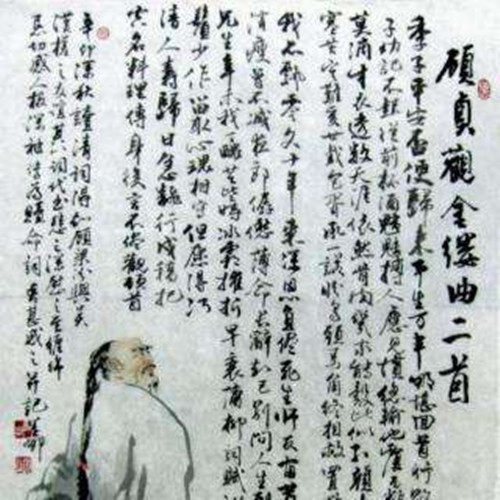 顧貞觀金縷曲二首
季子平安否便歸來平生万事那堪回首行
子幼記不起從前杯酒魑魅搏人應見慣總輸他覆
莫滴牛衣透數天涯依然骨肉幾家能彀比似紅顏
寒苦寒難受廿載包胥承一諾盼烏頭馬角終相救置
我亦飄零久十年來深恩負盡死生師友宿昔
消瘦曾不減夜郎僝僽薄命長辭知己別問人生到
兄生辛未我丁丑共此時冰霜摧折早衰蒲柳詞賦
鬢少作留取心魂相守但願得河
清人壽歸日急翻行戍稿把
空名料理傳身後言不盡觀頓首
辛卯深秋讀清詞得知顧梁汾與吳
漢槎之友誼其詞
真切感人 命詞 甚感之並記